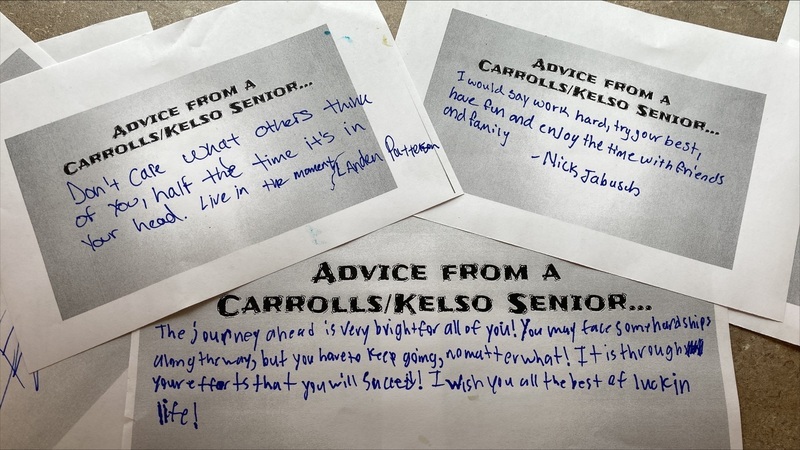 ADVICE FROM A
CARROLLS/KELSO SENIOR...
Don't care what others think
of you, half the time it's in
your head. Live in the moment
Landen Patterson
ADVICE FROM A
CARROLLS/KELSO SENIOR...
I would say work hard, try your best,
have fun and enjoy the time with friends
and family
- Nick Jabusch
ADVICE FROM A
CARROLLS/KELSO SENIOR...
The journey ahead is very bright for all of you! You may face some hardships
along the way, but you have to keep going, no matter what! It is through
your efforts that you will succeed! I wish you all the best of luck in
life!